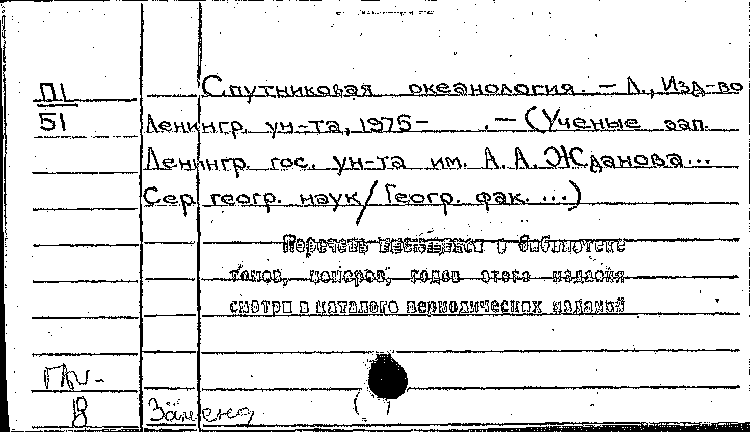 П1 Спутниковая океанология. – Л., Изд-во
51 Ленингр. ун-та, 1975 – . – (Ученые зап.
Ленингр. гос. ун-та им. А. А. Жданова...
Сер. геогр. наук / Геогр. фак. ...)
Перечень имеющихся в библиотеке
томов, номеров, годов этого издания
смотри в каталоге периодических изданий
В Замена